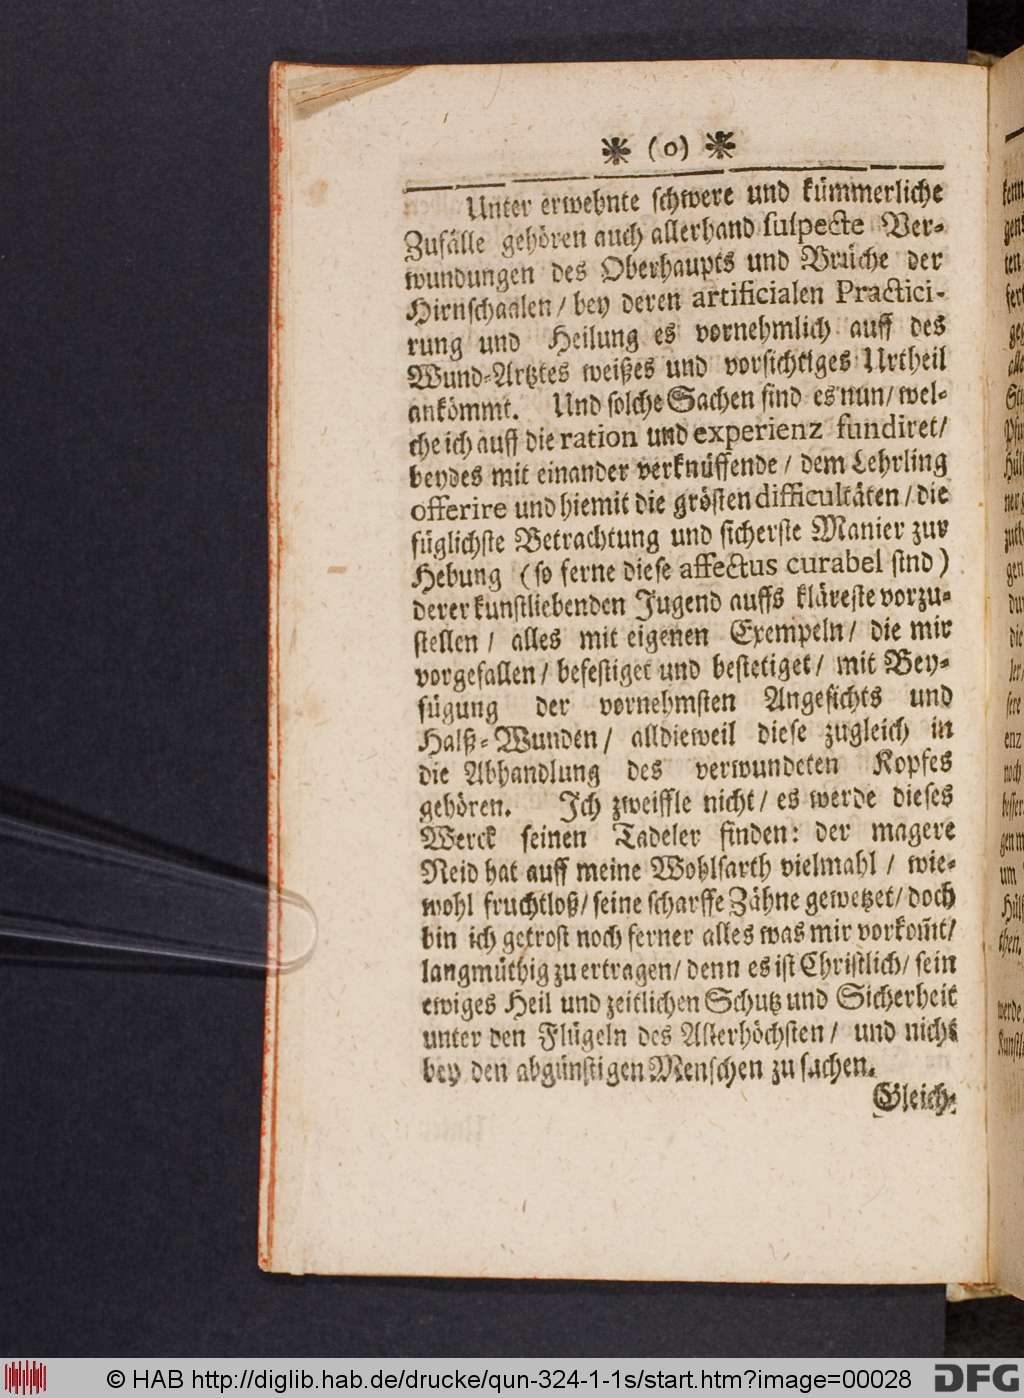 ❋ (0) ❋
Unter erwehnte schwere und kümmerliche
Zufälle gehören auch allerhand suspecte Ver-
wundungen des Oberhaupts und Brüche der
Hirnschaalen / bey deren artificialen Practici-
rung und Heilung es vornehmlich auff des
Wund-Artztes weißes und vorsichtiges Urtheil
ankömmt. Und solche Sachen sind es nun / wel-
che ich auff die ration und experienz fundiret /
beydes mit einander verknüffende / dem Lehrling
offerire und hiemit die grösten difficultäten / die
füglichste Betrachtung und sicherste Manier zur
Hebung (so ferne diese affectus curabel sind)
derer kunstliebenden Jugend auffs kläreste vorzu-
stellen / alles mit eigenen Exempeln / die mir
vorgefallen / befestiget und bestetiget / mit Bey-
fügung der vornehmsten Angesichts und
Halß-Wunden / alldieweil diese zugleich in
die Abhandlung des verwundeten Kopfes
gehören. Ich zweiffle nicht / es werde dieses
Werck seinen Tadeler finden: der magere
Neid hat auff meine Wohlfarth vielmahl / wie-
wohl fruchtloß / seine scharffe Zähne gewetzet / doch
bin ich getrost noch ferner alles was mir vorkom̃t /
langmüthig zu ertragen / denn es ist Christlich / sein
ewiges Heil und zeitlichen Schutz und Sicherheit
unter den Flügeln des Allerhöchsten / und nicht
bey den abgünstigen Menschen zu suchen.
Gleich-
© HAB http://diglib.hab.de/drucke/qun-324-1-1s/start.htm?image=00028
DFG